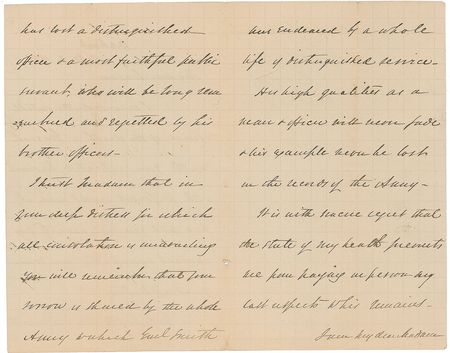 has lost a distinguished
officer & a most faithful public
servant, who will be long rem
embered and regretted by his
brother officers -
I trust Madam that in
your deep distress for which
all consolation is unavailing
you will remember that your
sorrow is shared by the whole
Army to which Genl Smith
was endeared by a whole
life of distinguished service -
His high qualities as a
man & officer will never fade
& his example never be lost
in the records of the Army -
It is with sincere regret that
the state of my health prevents
me from paying in person my
last respects to his remains.
I am my dear Madam